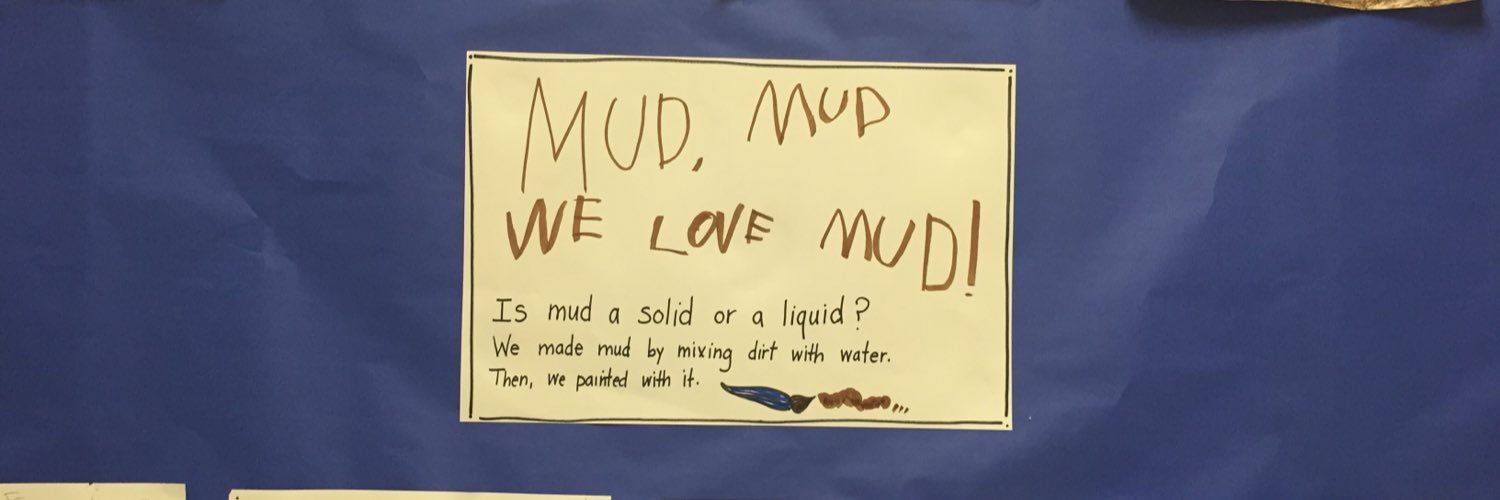 MUD, MUD
WE LOVE MUD!
Is mud a solid or a liquid?
We made mud by mixing dirt with water.
Then, we painted with it.